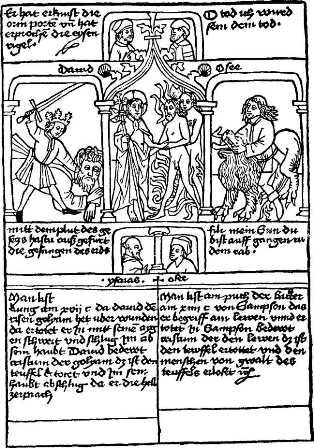 Er hat erknist die
orin porte vn hat
erproche die eisen
rigel.
O tod ich wurd
sein dein tod.
Dauid
Osee
mitt dem plut des ge
hastu auß gefürt
die gefangen des
mein Sun du
bist auff gangen zu
dem rab.
ysaias
Man list
kung am xvij c da dauid de
risen goliam het über wunden
da ertotet er in mit seinē aigē
en schwert und schlug im ab
sein haubt Dauid bedewt
cristum der goliam dz ist den
teuffel ertoet und im sein
haubt abschlug da er die hell
zerprach
Man list am puch der
am xiiij c von Sampson das
er begriff ain lewen vnd er
totet in Sampson bedewt
cristum der den lewen dz ist
den teuffel ertottet vnd den
menschen von gwalt des
teuffels erlost